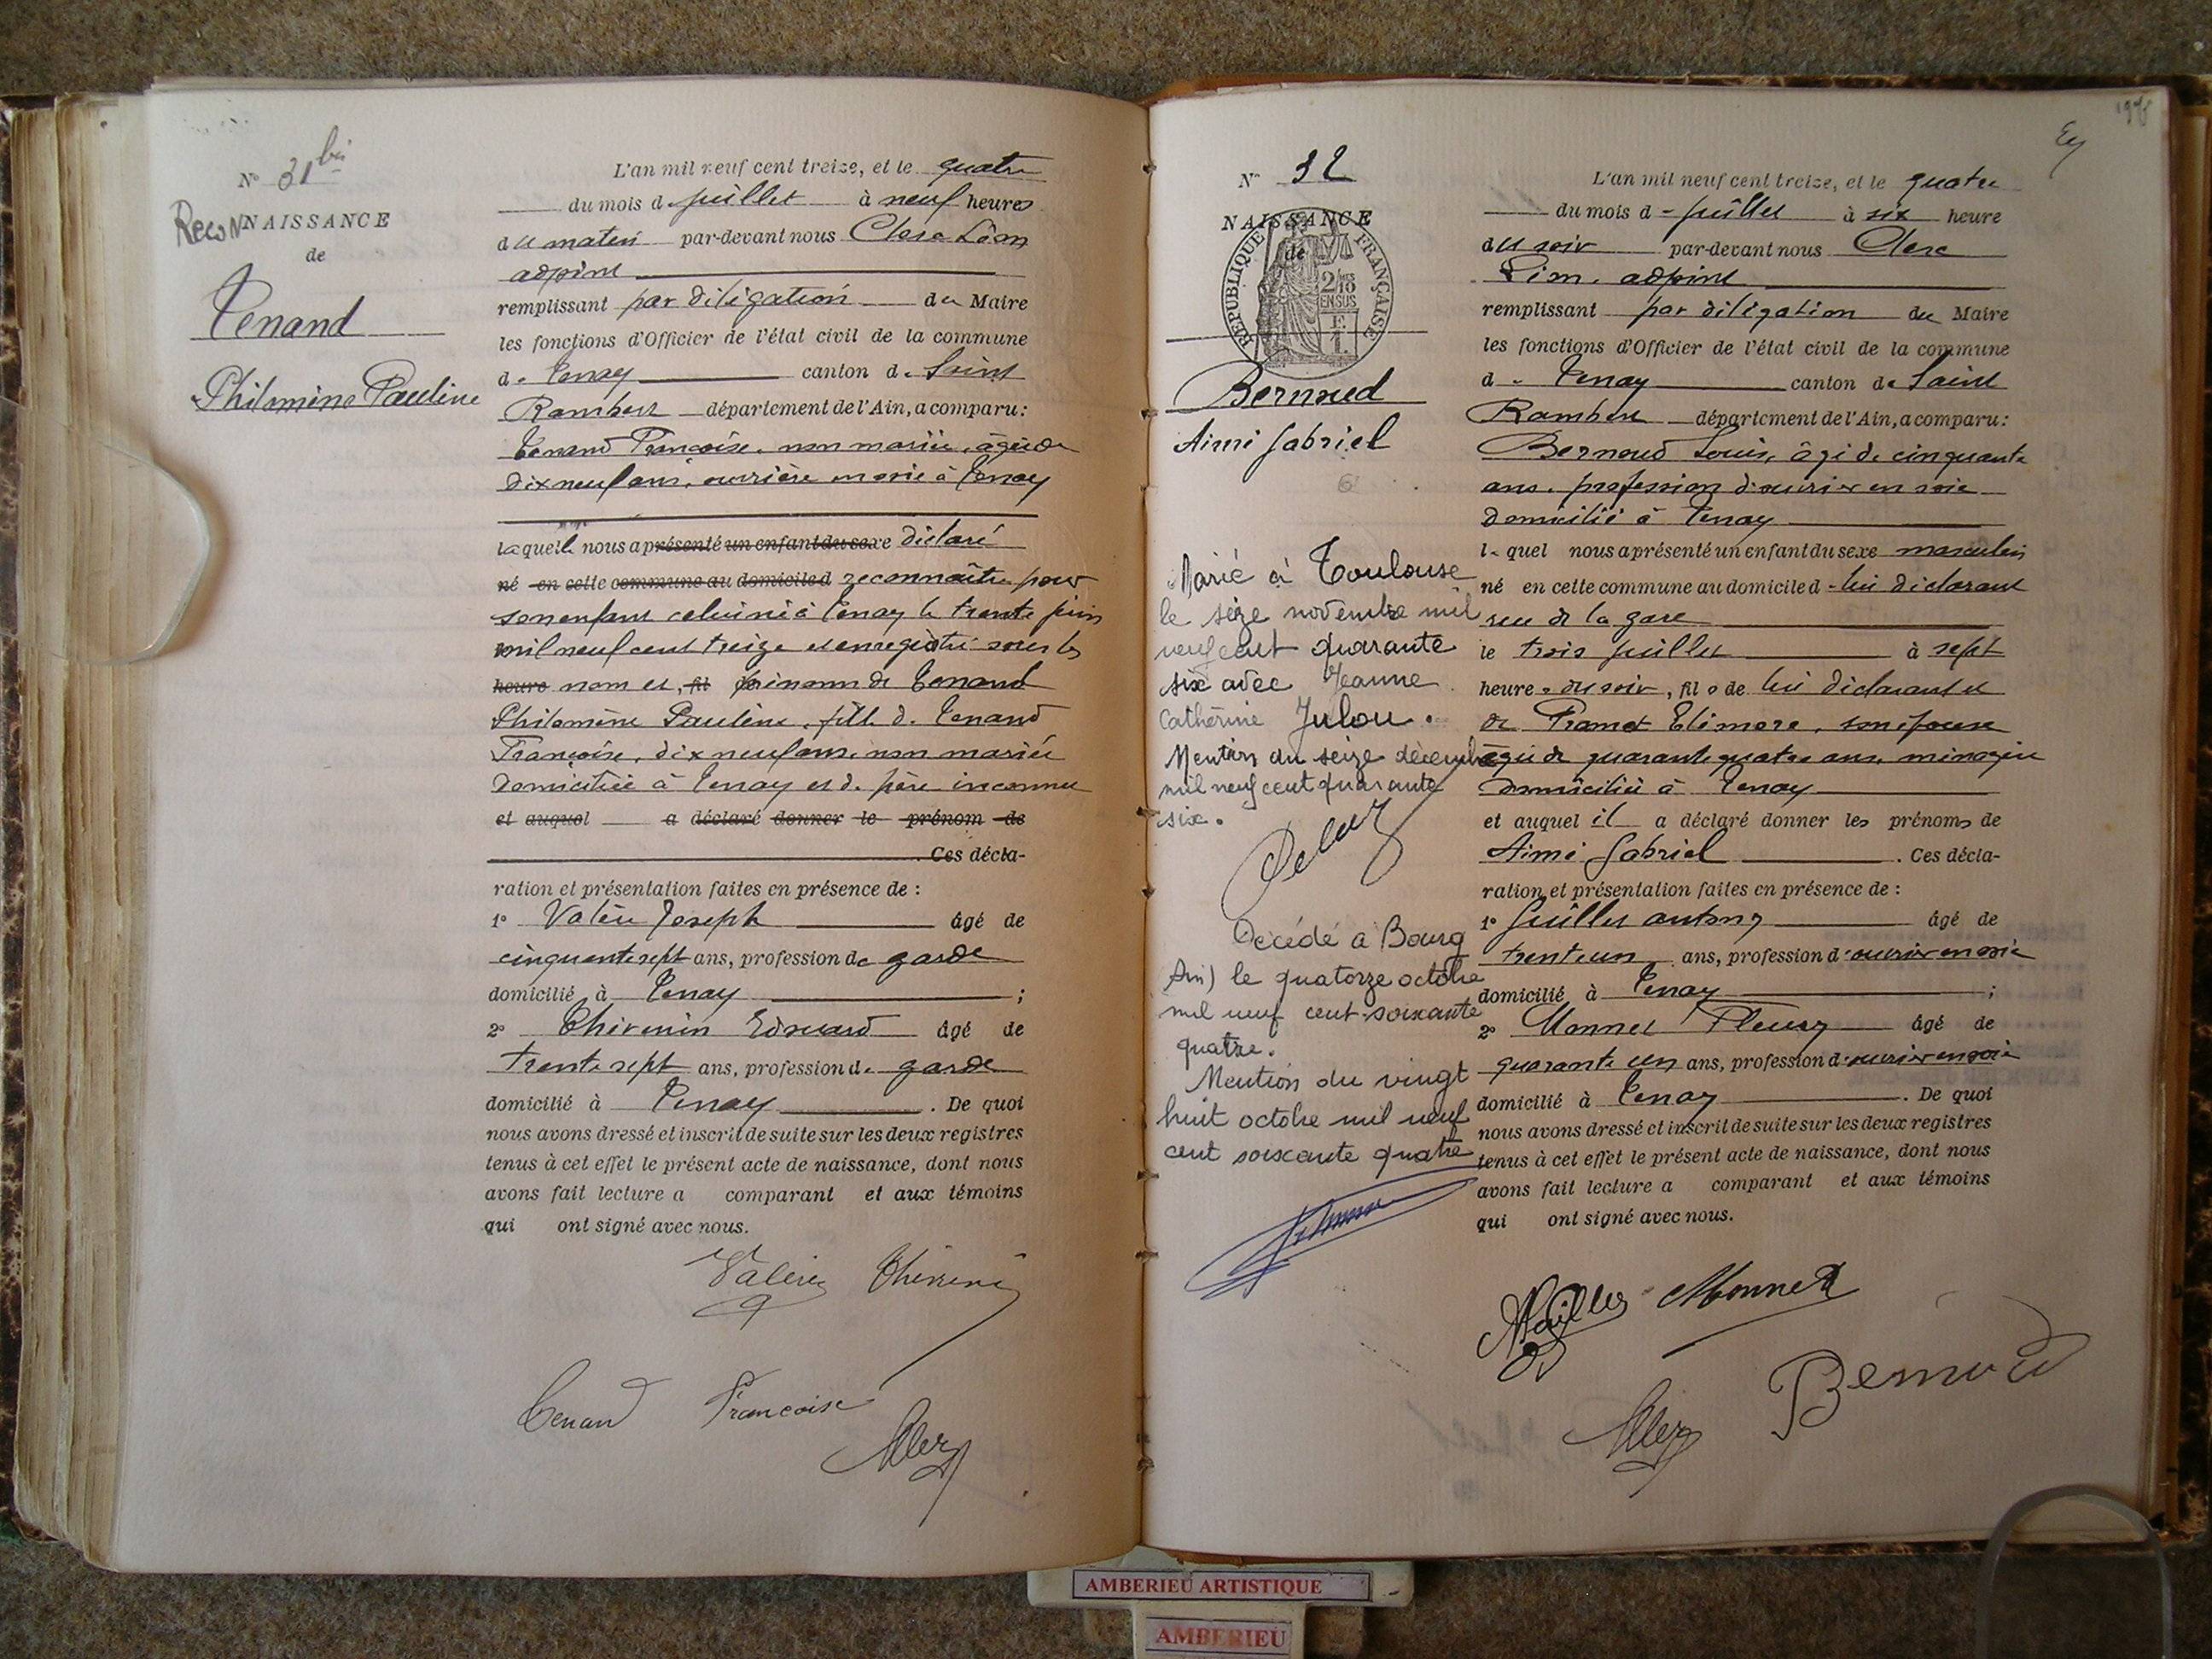 N° 31 bis
ReconNAISSANCE
de
Tenand
Philomène Pauline
L'an mil neuf cent treize, et le quatre
du mois de juillet à neuf heures
du matin par-devant nous Clerc Léon
adjoint
remplissant par délégation du Maire
les fonctions d'Officier de l'état civil de la commune
de Tenay canton de Saint
Rambert département de l'Ain, a comparu:
Tenand Françoise, non mariée, âgée de
dix neuf ans, ouvrière en soie à Tenay
laquelle nous a présenté un enfant du sexe déclaré
né en cette commune au domicile d reconnaître pour
son enfant celui né à Tenay le trente juin
mil neuf cent treize et enregistré sous les
heure nom et, fil prénom de Tenand
Philomène Pauline, fille de Tenand
Françoise, dix neuf ans, non mariée
domiciliée à Tenay et de père inconnu
et auquel a déclaré donner le prénom de
. Ces décla-
ration et présentation faites en présence de :
1° Joseph âgé de
cinquante sept ans, profession de garde
domicilié à Tenay ;
2° Thévenin Edouard âgé de
trente sept ans, profession de garde
domicilié à Tenay . De quoi
nous avons dressé et inscrit de suite sur les deux registres
tenus à cet effet le présent acte de naissance, dont nous
avons fait lecture a comparant et aux témoins
qui ont signé avec nous.
Tenand Françoise
N° 32
NAISSANCE
de
REPUBLIQUE FRANÇAISE
2/10
EN SUS
Bernoud
Aimé Gabriel
Marié à Toulouse
le seize novembre mil
neuf cent quarante
six avec Jeanne
Catherine Julou.
Mention du seize décembre
mil neuf cent quarante
six.
Décédé à Bourg
(Ain) le quatorze octobre
mil neuf cent soixante
quatre.
Mention du vingt
huit octobre mil neuf
cent soixante quatre
L'an mil neuf cent treize, et le quatre
du mois de juillet à six heure
du soir par-devant nous Clerc
Léon, adjoint
remplissant par délégation du Maire
les fonctions d'Officier de l'état civil de la commune
de Tenay canton de Saint
Rambert département de l'Ain, a comparu:
Bernoud Louis, âgé de cinquante
ans, profession d'ouvrier en soie
domicilié à Tenay
lequel nous a présenté un enfant du sexe masculin
né en cette commune au domicile de lui déclarant
rue de la gare
le trois juillet à sept
heures du soir, fils de lui déclarant et
de son épouse
âgée de quarante quatre ans, ménagère
domiciliée à Tenay
et auquel il a déclaré donner les prénoms de
Aimé Gabriel . Ces décla-
ration et présentation faites en présence de :
1° âgé de
trente un ans, profession d'ouvrier en soie
domicilié à Tenay ;
2° Monnet Fleury âgé de
quarante un ans, profession d'ouvrier en soie
domicilié à Tenay . De quoi
nous avons dressé et inscrit de suite sur les deux registres
tenus à cet effet le présent acte de naissance, dont nous
avons fait lecture a comparant et aux témoins
qui ont signé avec nous.
Monnet
Bernoud
AMBERIEU ARTISTIQUE
AMBERIEU